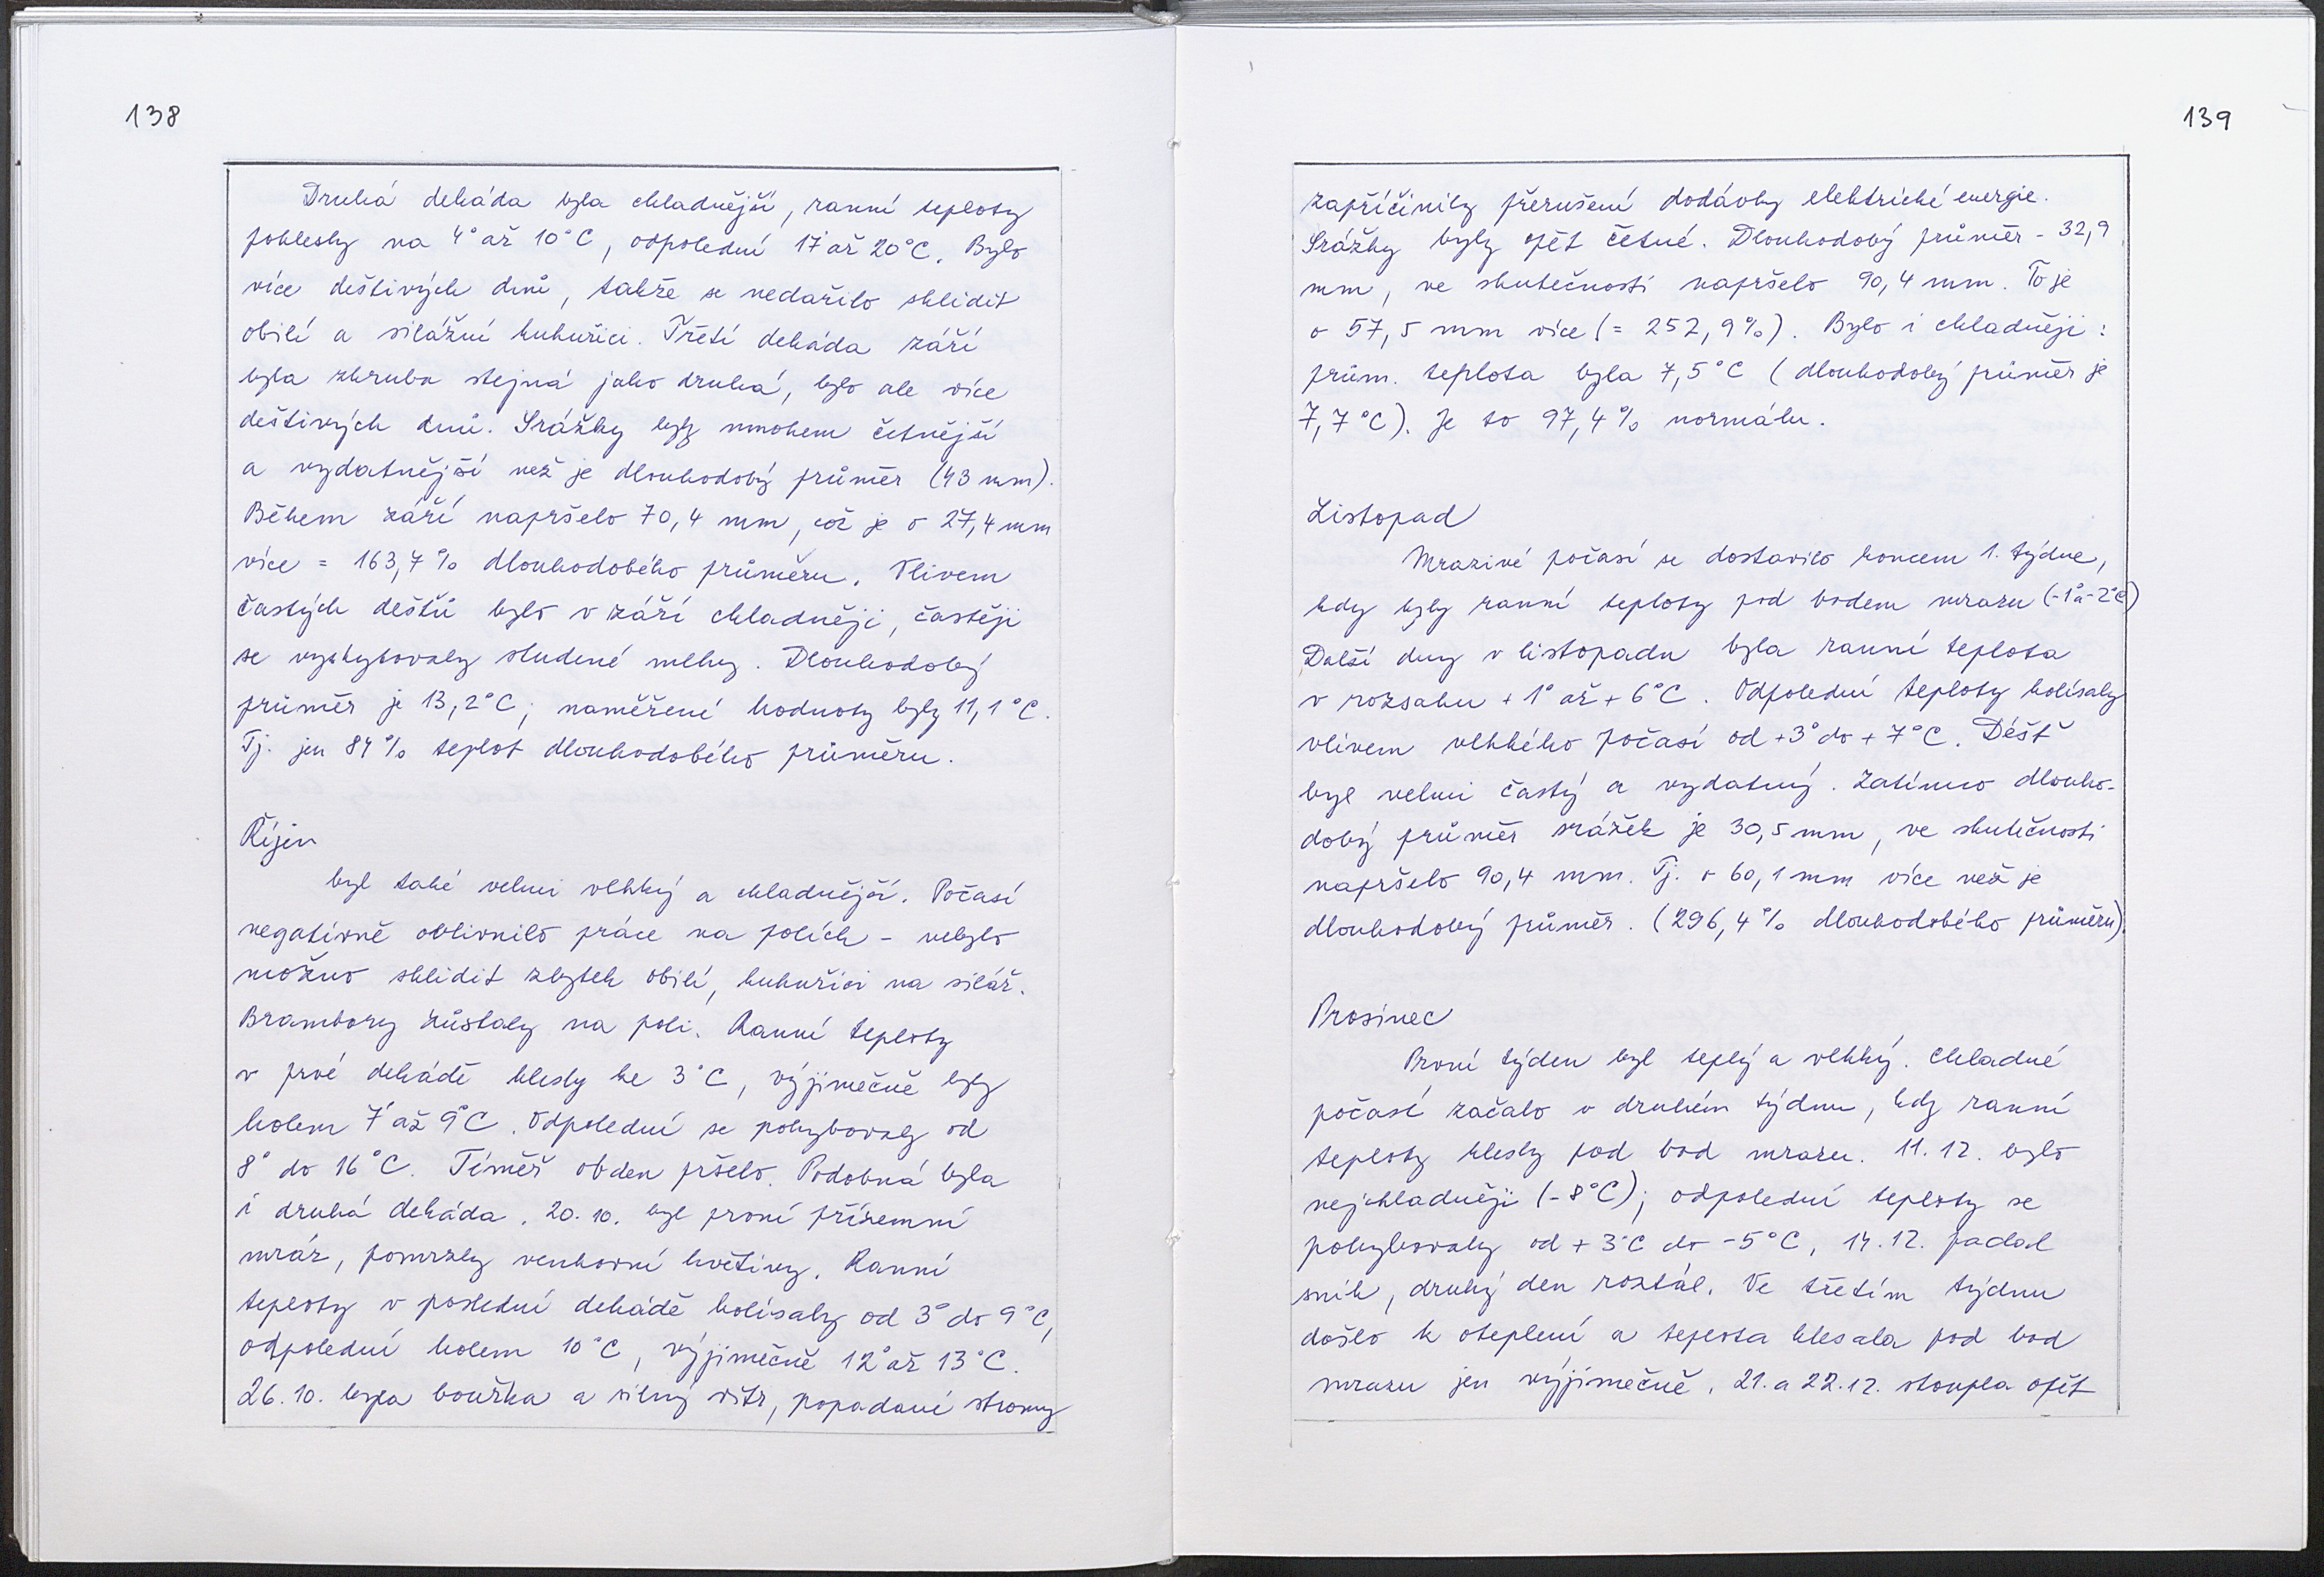 138
Druhá dekáda byla chladnější, ranní teploty
poklesly na 4° až 10°C, odpolední 17° až 20°C. Bylo
více deštivých dnů, takže se nedařilo sklidit
obilí a silážní kukuřici. Třetí dekáda září
byla zhruba stejná jako druhá, bylo ale více
deštivých dnů. Srážky byly mnohem četnější
a vydatnější než je dlouhodobý průměr (43 mm).
Během září napršelo 70,4 mm, což je o 27,4 mm
více = 163,7% dlouhodobého průměru. Vlivem
častých dešťů bylo v září chladněji, častěji
se vyskytovaly studené mlhy. Dlouhodobý
průměr je 13,2°C; naměřené hodnoty byly 11,1°C.
Tj. jen 84% teplot dlouhodobého průměru.
Říjen
byl také velmi vlhký a chladnější. Počasí
negativně ovlivnilo práce na polích - nebylo
možno sklidit zbytek obilí, kukuřici na siláž.
Brambory zůstaly na poli. Ranní teploty
v prvé dekádě klesly ke 3°C, výjimečně byly
kolem 7° až 9°C. Odpolední se pohybovaly od
8° do 16°C. Téměř obden pršelo. Podobná byla
i druhá dekáda. 20. 10. byl první přízemní
mráz, pomrzly venkovní květiny. Ranní
teploty v poslední dekádě kolísaly od 3° do 9°C,
odpolední kolem 10°C, výjimečně 12° až 13°C.
26. 10. byla bouřka a silný vítr, popadané stromy
139
zapříčinily přerušení dodávky elektrické energie.
Srážky byly opět četné. Dlouhodobý průměr - 32,9
mm, ve skutečnosti napršelo 90,4 mm. To je
o 57,5 mm více (= 252,9%). Bylo i chladněji:
prům. teplota byla 7,5°C (dlouhodobý průměr je
7,7°C). Je to 97,4% normálu.
Listopad
Mrazivé počasí se dostavilo koncem 1. týdne,
kdy byly ranní teploty pod bodem mrazu (-1° a -2°C)
Další dny v listopadu byla ranní teplota
v rozsahu +1° až +6°C. Odpolední teploty kolísaly
vlivem vlhkého počasí od +3° do +7°C. Déšť
byl velmi častý a vydatný. Zatímco dlouho-
dobý průměr srážek je 30,5 mm, ve skutečnosti
napršelo 90,4 mm. Tj. o 60,1 mm více než je
dlouhodobý průměr. (296,4% dlouhodobého průměru).
Prosinec
První týden byl teplý a vlhký. Chladné
počasí začalo v druhém týdnu, kdy ranní
teploty klesly pod bod mrazu. 11. 12. bylo
nejchladněji (-8°C); odpolední teploty se
pohybovaly od +3°C do -5°C, 14. 12. padal
sníh, druhý den roztál. Ve třetím týdnu
došlo k oteplení a teplota klesala pod bod
mrazu jen výjimečně. 21. a 22. 12. stoupla opět